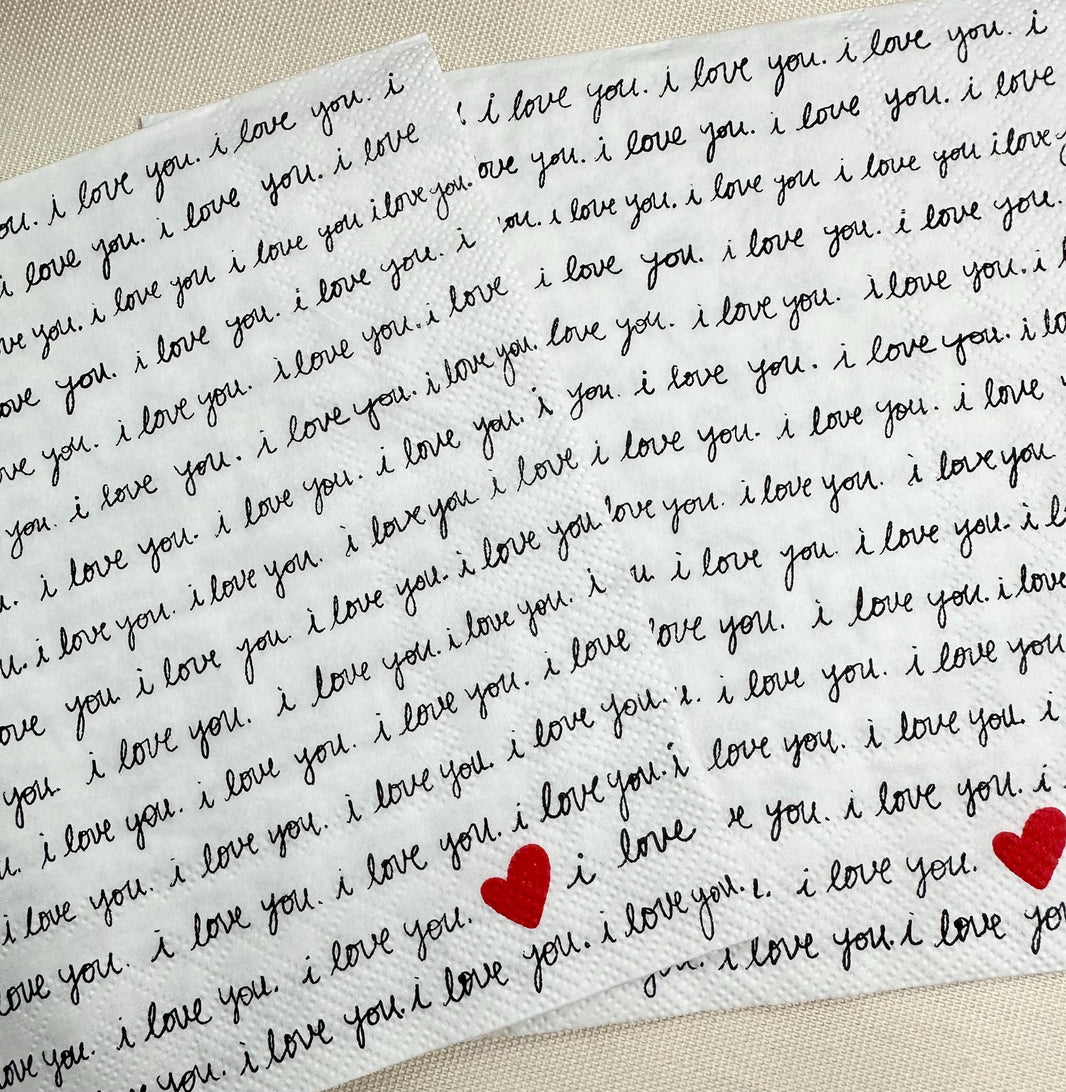 ou. i love you. i love you. i
i love you. i love you. i love
ve you. i love you i love you i love you.
ove you. i love you. i love you. i
ove you. i love you. i love you. i love
you. i love you. i love you. i love you.
u. i love you. i love you. i love you. i
u. i love you. i love you. i love you i love
ove you. i love you. i love you. i love you.
you. i love you. i love you. i love you. i
u. i love you. i love you. i love you. i love
i love you. i love you. i love you. i love you.
love you. i love you. i love you. i love you. i
ove you. i love you. i love you. i love
you. i love you. i love you. i love you.
i love you. i love you. i love you. i
ove you. i love you. i love you. i love
ou. i love you. i love you i love you i love y
i love you. i love you. i love you.
love you. i love you. i love you. i l
you. i love you. i love you. i lo
i love you. i love you. i love
ove you. i love you. i love you
u. i love you. i love you. i l
ove you. i love you. i love
i love you. i love you
love you. i love you. i
e you. i love you. i
i love you.
you. i love you. i love you